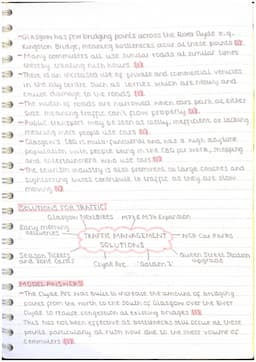 -Glasgow has few bridging points across the River Clyde e.g.
Kingston Bridge, meaning bottlenecks occur at these points
-Many commuters all use similar roads at similar times
thereby creating rush hours
-There is an increased use of private and commercial vehicles
in the city centre such as lorries which are heavy and
cause damage to the roads
-The width of roads are narrowed when cars park at either
side meaning traffic can't flow properly
-Public transport may be seen as costly, inefficient or lacking
meaning more people use cars
-Glasgow's CBD is multi-functional and has a high daytime
population with people being in the CBD for work, shopping
and entertainment who use cars
-The tourism industry is also prominent as large coaches and
sightseeing buses contribute to traffic as they are slow
moving
SOLUTIONS FOR TRAFFIC:
Glasgow Fastlink M77 & M74 Expansion
Early morning
deliveries
TRAFFIC MANAGEMENT
SOLUTIONS
NCP Car Parks
Season Tickets
and Zone Cards
Clyde Arc 'Golden Z'
Queen Street Station
upgrade
MODEL ANSWERS:
-The Clyde Arc was built to increase the amount of bridging
points from the north to the south of Glasgow over the River
Clyde to reduce congestion at existing bridges
This has not been effective as bottlenecks still occur at these
points particularly at rush hour due to the sheer volume of
commuters